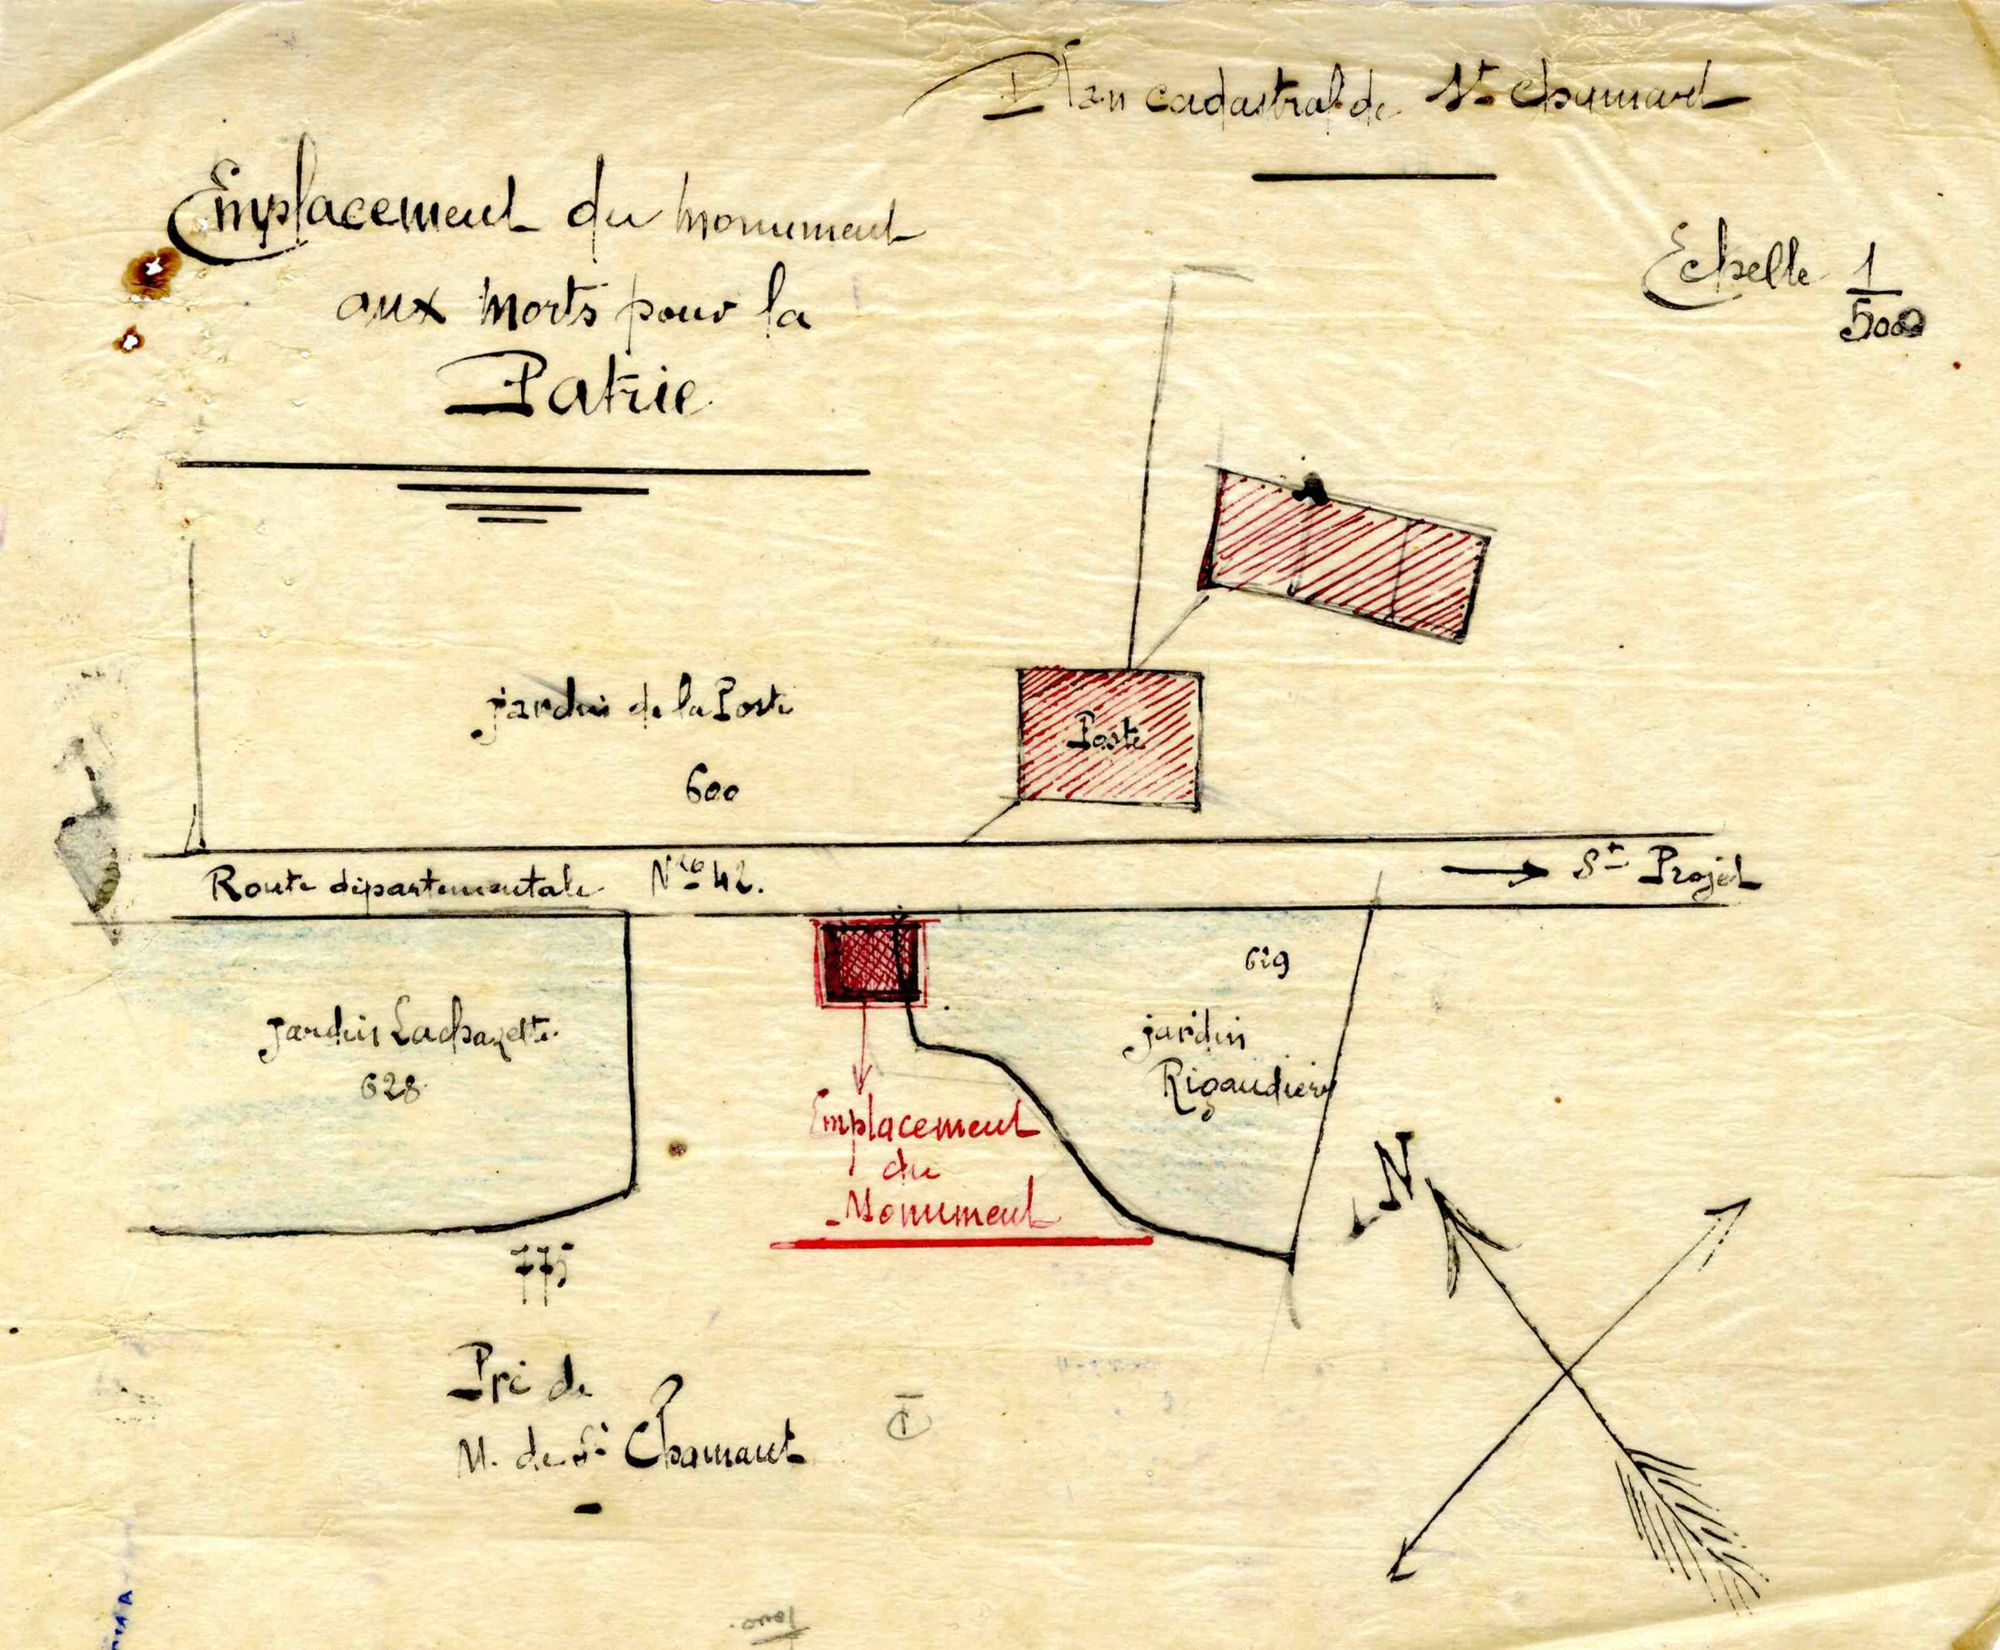 Plan cadastral de St Chamant
Emplacement du monument
aux morts pour la
Patrie
Echelle 1/5000
jardin de la Poste
600
Poste
Route départementale Nro 42.
→ St Projet
jardin Lachazette
628
629
jardin
Rigaudière
Emplacement
du
Monument
N
775
Pré de
M. de St Chamant